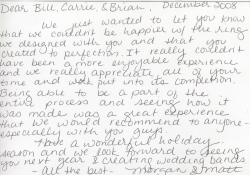 Dear Bill, Carrie, & Brian, December 2008
We just wanted to let you know
that we couldn't be happier w/ the ring
we designed with you and that you
created to perfection. It really couldn't
have been a more enjoyable experience
and we really appreciate all of your
time and work put into its completion.
Being able to be a part of the
entire process and seeing how it
was made was a great experience
that we would recommend to anyone -
especially with you guys.
Have a wonderful holiday
season and we look forward to seeing
you next year & creating wedding bands
- All the best - Morgan & Matt